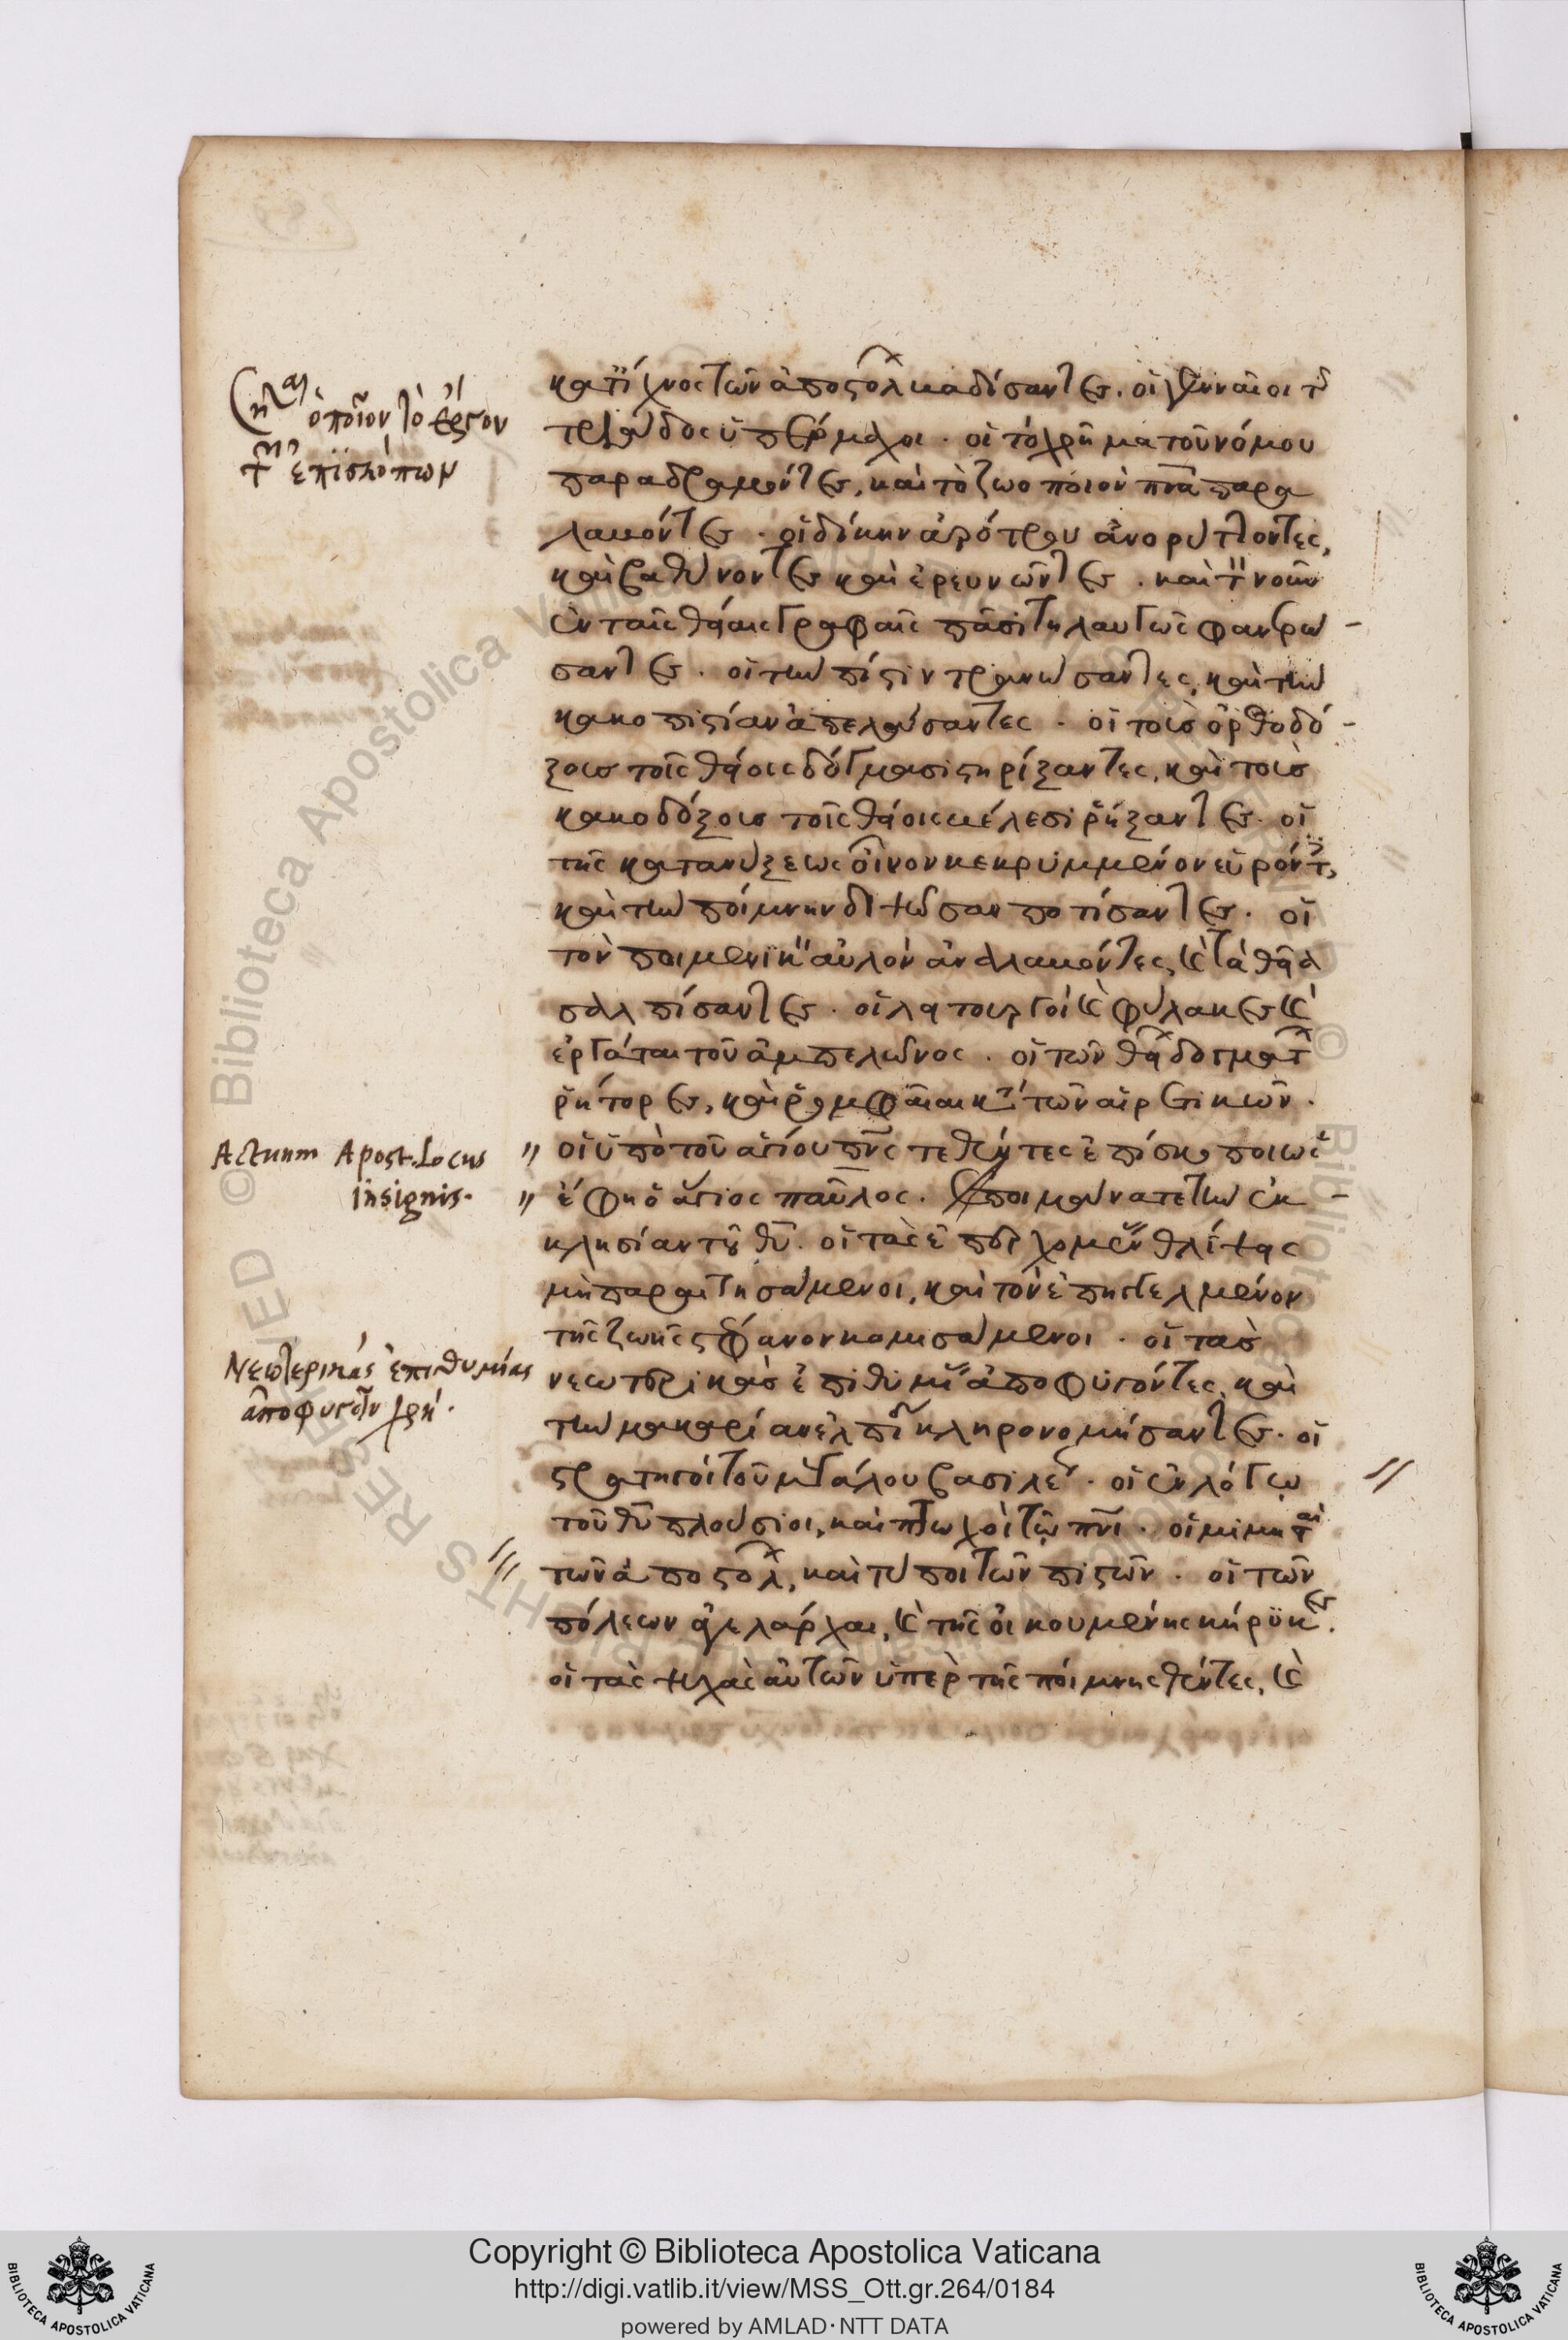 κατ' ἴχνος τῶν ἀποστόλ βαδίσαντες. οἱ γενναῖοι τῆς
τριάδος ὑπέρμαχοι. οἱ τὸ χρῆμα τοῦ νόμου
παραδραμόντες, καὶ τὸ ζωοποιὸν πνᾶ παρα
λαβόντες. οἱ δίκην ἀρότρου ἀνορύττοντες,
καὶ βαθύνοντες καὶ ἐρευνῶντες. καὶ τὸν νοῦν
ἐν ταῖς θείαις γραφαῖς πᾶσι τηλαυγῶς φανερώ-
σαντες. οἱ τὴν πίστιν τρανώσαντες, καὶ τὴν
κακοπιστίαν ἀπελάσαντες. οἱ τοὺς ὀρθοδό-
ξους τοῖς θείοις δόγμασι στηρίξαντες, καὶ τοὺς
κακοδόξους τοῖς θείοις βέλεσι ῥήξαντες. οἱ
τῆς κατανύξεως οἶνον κεκρυμμένον εὑρόντες,
καὶ τὴν ποίμνην διψῶσαν ποτίσαντες. οἱ
τὸν ποιμενικὸν αὐλὸν ἀναλαβόντες, καὶ τὰ θεῖα
σαλπίσαντες. οἱ λειτουργοὶ καὶ φύλακες καὶ
ἐργάται τοῦ ἀμπελῶνος. οἱ τῶν θείων δογμάτ
ῥήτορες, καὶ ῥομφαῖαι κατὰ τῶν αἱρετικῶν.
οἱ ὑπὸ τοῦ ἁγίου πνς τεθέντες ἐπίσκοποι ὡς
ἔφη ὁ ἅγιος παῦλος. ποιμαίνατε τὴν ἐκ-
κλησίαν τοῦ θυ. οἱ τὰς ἐπερχομένας θλίψεις
μὴ παραιτησάμενοι, καὶ τὸν ἐπηγγελμένον
τῆς ζωῆς στέφανον κομισάμενοι. οἱ τὰς
νεωτερικὰς ἐπιθυμίας ἀποφυγόντες, καὶ
τὴν μακαρίαν ἐλπίδα κληρονομήσαντες. οἱ
στρατηγοὶ τοῦ μεγάλου βασιλέως. οἱ ἐν λόγῳ
τοῦ θυ πλούσιοι, καὶ πτωχοὶ τῷ πνι. οἱ μιμηταὶ
τῶν ἀποστόλ, καὶ τύποι τῶν πιστῶν. οἱ τῶν
πόλεων ἀγελάρχαι, καὶ τῆς οἰκουμένης κήρυκες.
οἱ τὰς ψυχὰς αὐτῶν ὑπὲρ τῆς ποίμνης θέντες, καὶ
ὁποῖον τὸ ἔργον
τῶν ἐπισκόπων
Actuum Apost. Locus
insignis.
Νεωτερικὰς ἐπιθυμίας
ἀποφυγεῖν χρή.
BIBLIOTECA APOSTOLICA VATICANA
Copyright © Biblioteca Apostolica Vaticana
http://digi.vatlib.it/view/MSS_Ott.gr.264/0184
powered by AMLAD·NTT DATA
BIBLIOTECA APOSTOLICA VATICANA